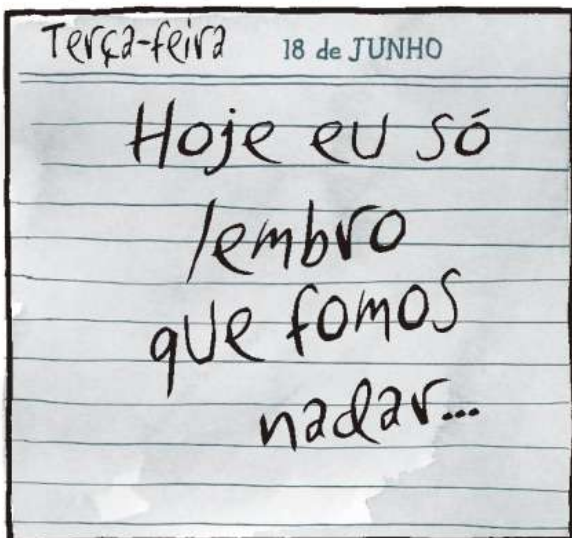 Terça-feira 18 de JUNHO
Hoje eu só
lembro
que fomos
nadar...